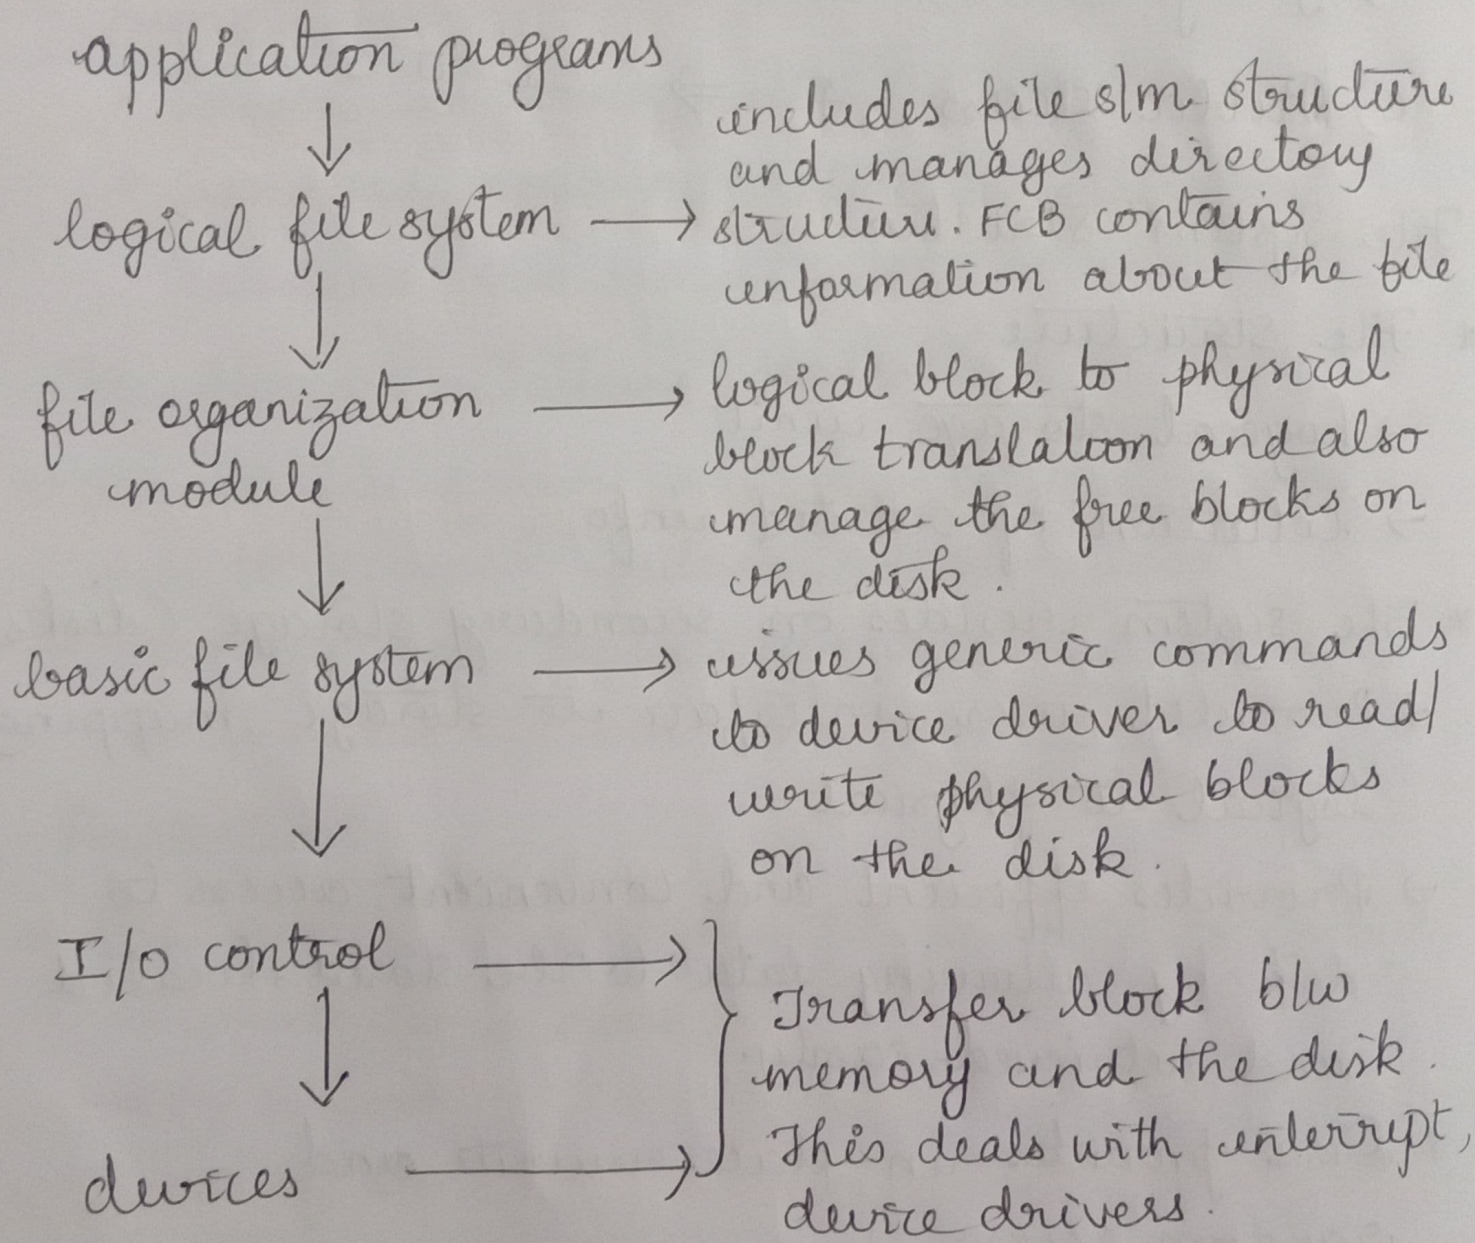 application programs
includes file s/m structure
and manages directory
logical file system → structure. FCB contains
information about the file
file organization → logical block to physical
module
block translation and also
manage the free blocks on
the disk.
basic file system → issues generic commands
to device driver to read/
write physical blocks
on the disk.
I/O control →
Transfer block b/w
memory and the disk.
This deals with interrupt,
devices →
device drivers.